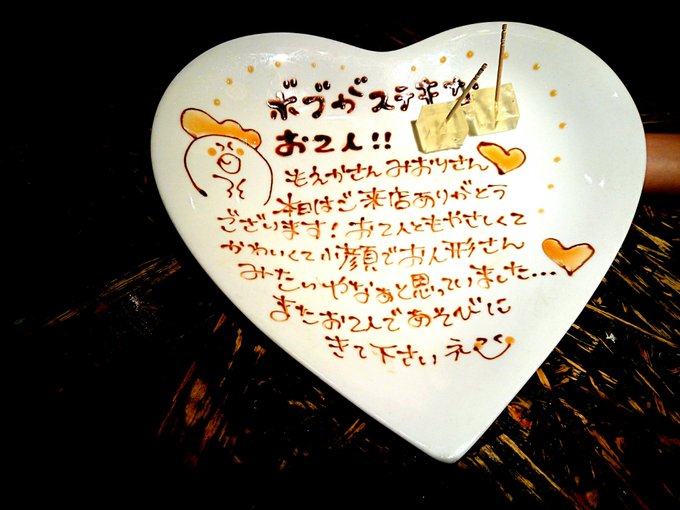 ボブがステキな
お二人!!
もえかさんみおりさん
本日はご来店ありがとう
ございます！お二人ともやさしくて
かわいくて小顔でお人形さん
みたいやなぁと思っていました...
またお二人であそびに
きて下さいネ